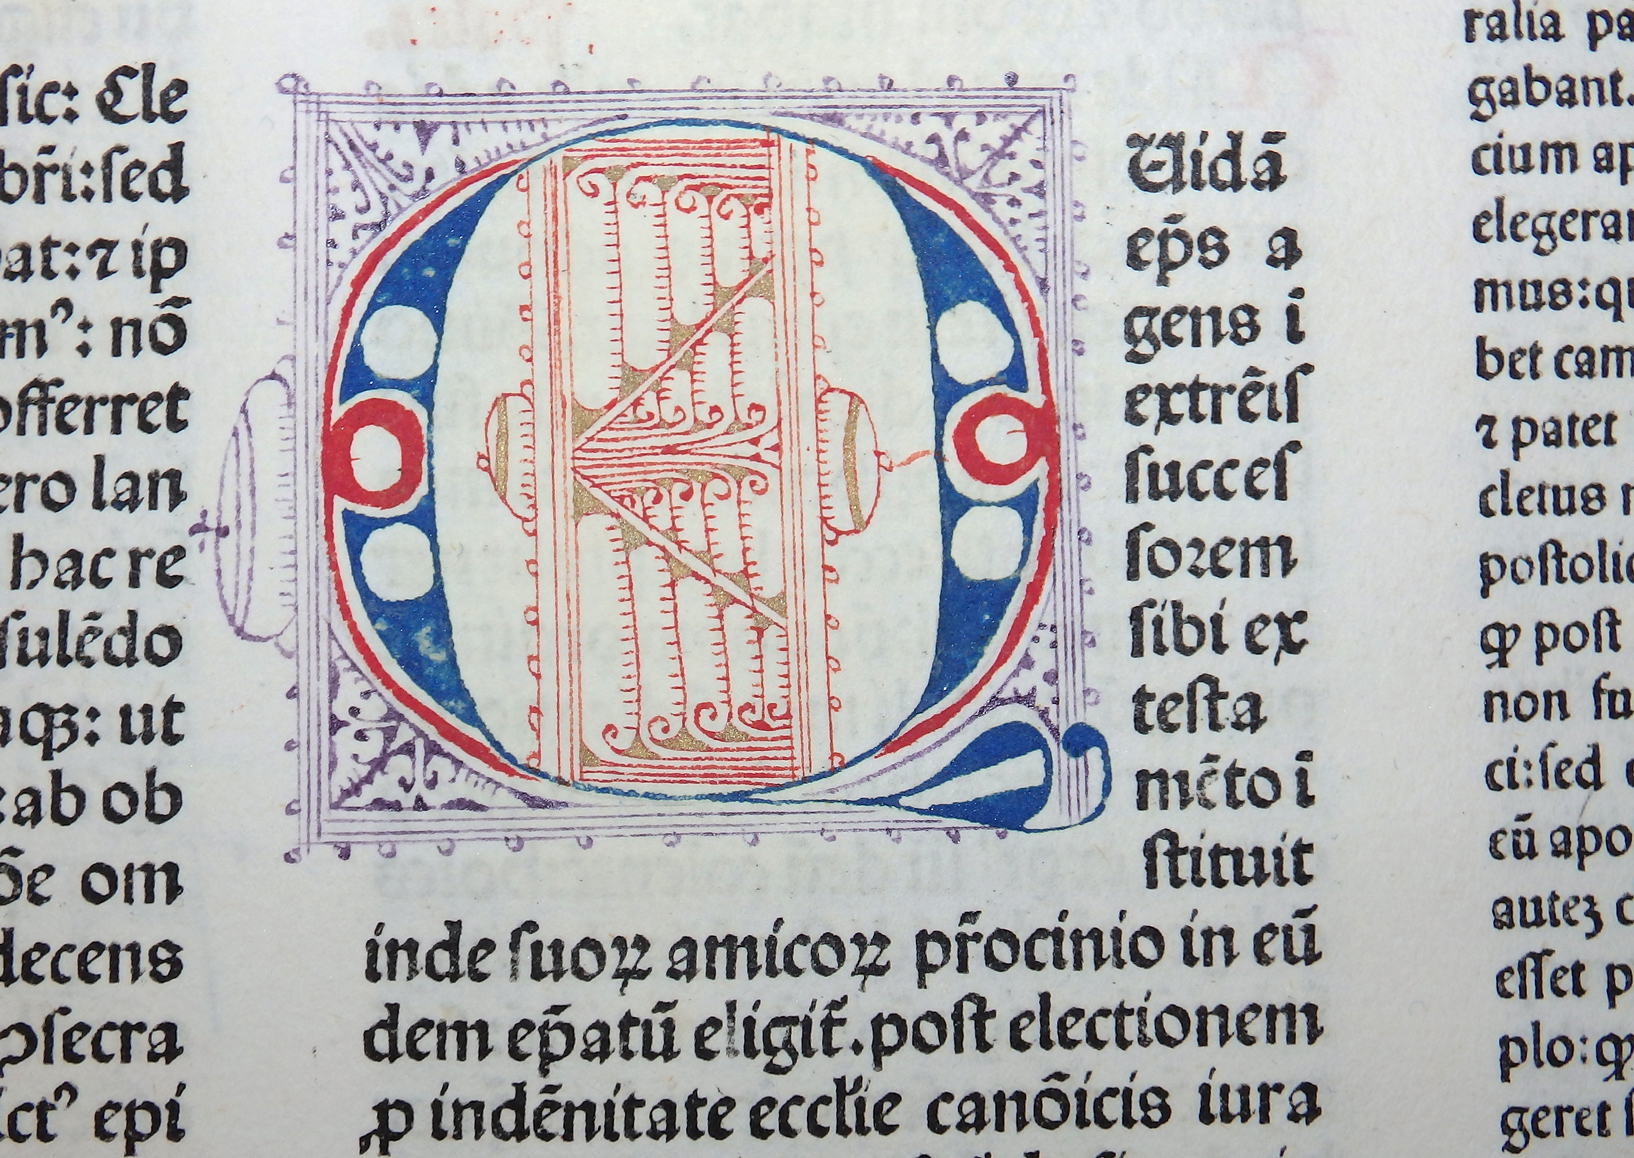 sic: Cle
br̄i:ſed
at:⁊ ip
m⁹: nō
offerret
ero lan
hac re
ſulēdo
aqꝫ: ut
:ab ob
ōe om
decens
ↄſecra
ict⁹ epi
Q
Uidā
ep̄s a
gens ī
extrēiſ
succeſ
ſoꝛem
sibi ex
teſta
mēto ī
ſtituit
inde ſuoꝝ amicoꝝ pr̄ocinio in eū
dem ep̄atū eligit̄. poſt electionem
ꝓ indēnitate eccłie canōicis iura
ralia pa
gabant.
cium ap
elegeran
mus:qu
bet cam
⁊ patet
cletus n
poſtolic
ꝙ poſt
non fu
ci:ſed
eū apo
auteꝫ c
eſſet p
plo:ꝙ
geret ſ